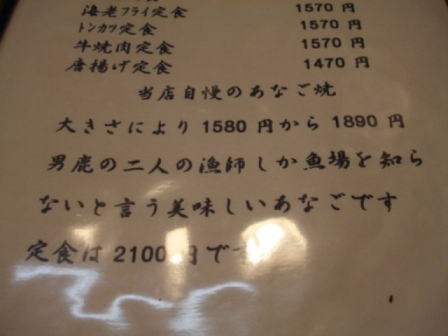 海老フライ定食 1570 円
トンカツ定食 1570 円
牛焼肉定食 1570 円
唐揚げ定食 1470 円
当店自慢のあなご焼
大きさにより 1580 円から 1890 円
男鹿の二人の漁師しか魚場を知ら
ないと言う美味しいあなごです
定食は 2100 円です